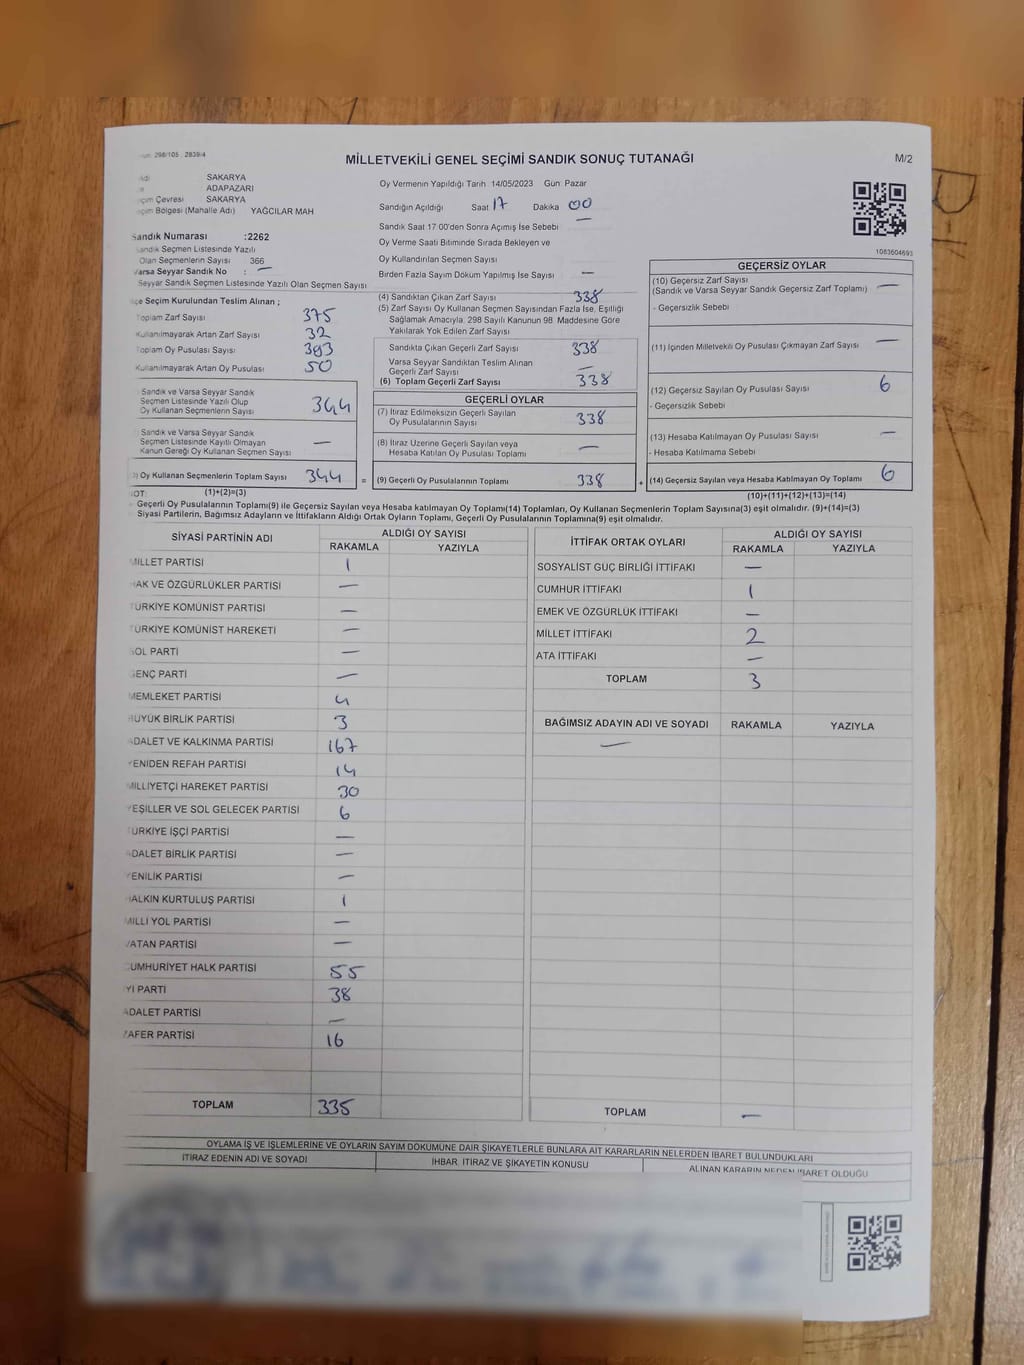 298/105 2839/4
MİLLETVEKİLİ GENEL SEÇİMİ SANDIK SONUÇ TUTANAĞI
M/2
SAKARYA
ADAPAZARI
SAKARYA
Bölgesi (Mahalle Adı) YAĞCILAR MAH
Sandık Numarası :2262
Sandık Seçmen Listesinde Yazılı
Olan Seçmenlerin Sayısı 366
Varsa Seyyar Sandık No : —
Seyyar Sandık Seçmen Listesinde Yazılı Olan Seçmen Sayısı
Oy Vermenin Yapıldığı Tarih 14/05/2023 Gün Pazar
Sandığın Açıldığı Saat 17 Dakika 00
Sandık Saat 17:00'den Sonra Açımış İse Sebebi —
Oy Verme Saati Bitiminde Sırada Bekleyen ve
Oy Kullandırılan Seçmen Sayısı
Birden Fazla Sayım Döküm Yapılmış İse Sayısı —
1083604693
Seçim Kurulundan Teslim Alınan ;
Toplam Zarf Sayısı 375
Kullanılmayarak Artan Zarf Sayısı 32
Toplam Oy Pusulası Sayısı 393
Kullanılmayarak Artan Oy Pusulası 50
Sandık ve Varsa Seyyar Sandık
Seçmen Listesinde Yazılı Olup
Oy Kullanan Seçmenlerin Sayısı 344
Sandık ve Varsa Seyyar Sandık
Seçmen Listesinde Kayıtlı Olmayan
Kanun Gereği Oy Kullanan Seçmen Sayısı —
Oy Kullanan Seçmenlerin Toplam Sayısı 344 =
(1)+(2)=(3)
(4) Sandıktan Çıkan Zarf Sayısı 338
(5) Zarf Sayısı Oy Kullanan Seçmen Sayısından Fazla İse, Eşitliği
Sağlamak Amacıyla. 298 Sayılı Kanunun 98 Maddesine Göre
Yakılarak Yok Edilen Zarf Sayısı
Sandıkta Çıkan Geçerli Zarf Sayısı 338
Varsa Seyyar Sandıktan Teslim Alınan
Geçerli Zarf Sayısı —
(6) Toplam Geçerli Zarf Sayısı 338
GEÇERLİ OYLAR
(7) İtiraz Edilmeksizin Geçerli Sayılan
Oy Pusulalarının Sayısı 338
(8) İtiraz Üzerine Geçerli Sayılan veya
Hesaba Katılan Oy Pusulası Toplamı —
(9) Geçerli Oy Pusulalarının Toplamı 338 +
GEÇERSİZ OYLAR
(10) Geçersiz Zarf Sayısı
(Sandık ve Varsa Seyyar Sandık Geçersiz Zarf Toplamı) —
- Geçersizlik Sebebi
(11) İçinden Milletvekili Oy Pusulası Çıkmayan Zarf Sayısı —
(12) Geçersiz Sayılan Oy Pusulası Sayısı 6
- Geçersizlik Sebebi
(13) Hesaba Katılmayan Oy Pusulası Sayısı —
- Hesaba Katılmama Sebebi
(14) Geçersiz Sayılan veya Hesaba Katılmayan Oy Toplamı 6
(10)+(11)+(12)+(13)=(14)
Geçerli Oy Pusulalarının Toplamı(9) ile Geçersiz Sayılan veya Hesaba katılmayan Oy Toplamı(14) Toplamları, Oy Kullanan Seçmenlerin Toplam Sayısına(3) eşit olmalıdır. (9)+(14)=(3)
Siyasi Partilerin, Bağımsız Adayların ve İttifakların Aldığı Ortak Oyların Toplamı, Geçerli Oy Pusulalarının Toplamına(9) eşit olmalıdır.
SİYASİ PARTİNİN ADI ALDIĞI OY SAYISI
RAKAMLA YAZIYLA
MİLLET PARTİSİ 1
HAK VE ÖZGÜRLÜKLER PARTİSİ —
TÜRKİYE KOMÜNİST PARTİSİ —
TÜRKİYE KOMÜNİST HAREKETİ —
SOL PARTİ —
GENÇ PARTİ —
MEMLEKET PARTİSİ 4
BÜYÜK BİRLİK PARTİSİ 3
ADALET VE KALKINMA PARTİSİ 167
YENİDEN REFAH PARTİSİ 14
MİLLİYETÇİ HAREKET PARTİSİ 30
YEŞİLLER VE SOL GELECEK PARTİSİ 6
TÜRKİYE İŞÇİ PARTİSİ —
ADALET BİRLİK PARTİSİ —
YENİLİK PARTİSİ —
HALKIN KURTULUŞ PARTİSİ 1
MİLLİ YOL PARTİSİ —
VATAN PARTİSİ —
CUMHURİYET HALK PARTİSİ 55
İYİ PARTİ 38
ADALET PARTİSİ —
ZAFER PARTİSİ 16
TOPLAM 335
İTTİFAK ORTAK OYLARI ALDIĞI OY SAYISI
RAKAMLA YAZIYLA
SOSYALİST GÜÇ BİRLİĞİ İTTİFAKI —
CUMHUR İTTİFAKI 1
EMEK VE ÖZGÜRLÜK İTTİFAKI —
MİLLET İTTİFAKI 2
ATA İTTİFAKI —
TOPLAM 3
BAĞIMSIZ ADAYIN ADI VE SOYADI RAKAMLA YAZIYLA
—
TOPLAM —
OYLAMA İŞ VE İŞLEMLERİNE VE OYLARIN SAYIM DÖKÜMÜNE DAİR ŞİKAYETLERLE BUNLARA AİT KARARLARIN NELERDEN İBARET BULUNDUKLARI
İTİRAZ EDENİN ADI VE SOYADI İHBAR, İTİRAZ VE ŞİKAYETİN KONUSU ALINAN KARARIN NEDEN İBARET OLDUĞU